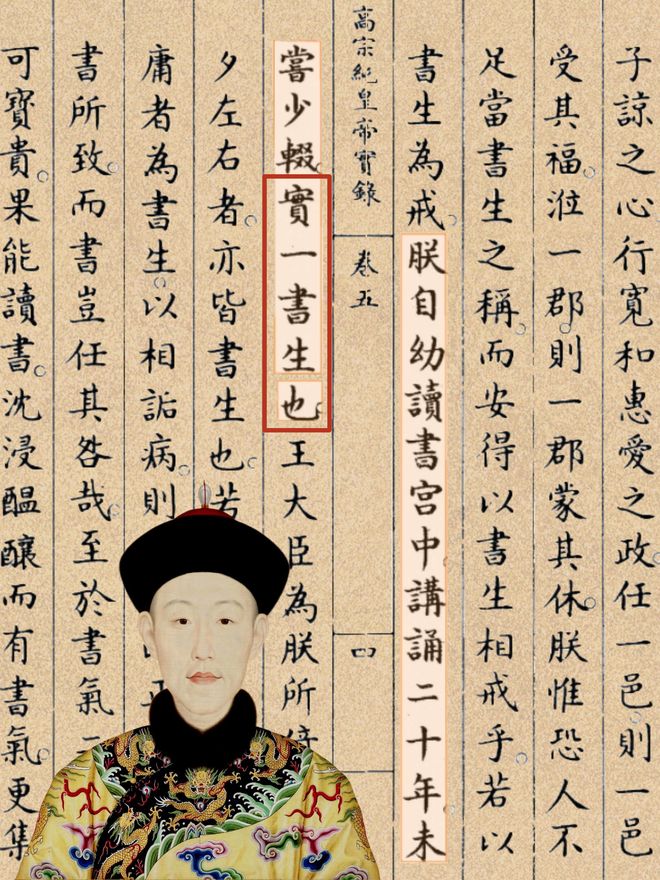 子諒之心行寬和惠愛之政。任一邑則一邑
受其福。涖一郡則一郡蒙其休。朕惟恐人不
足當書生之稱。而安得以書生相戒乎。若以
書生為戒。朕自幼讀書宮中。講誦二十年。未
高宗純皇帝實錄 卷五 四
嘗少輟。實一書生也。王大臣為朕所
夕左右者。亦皆書生也。若
庸者為書生。以相詬病。則
書所致。而書豈任其咎哉。至於書氣二
可寶貴。果能讀書。沈浸醞釀而有書氣。更集